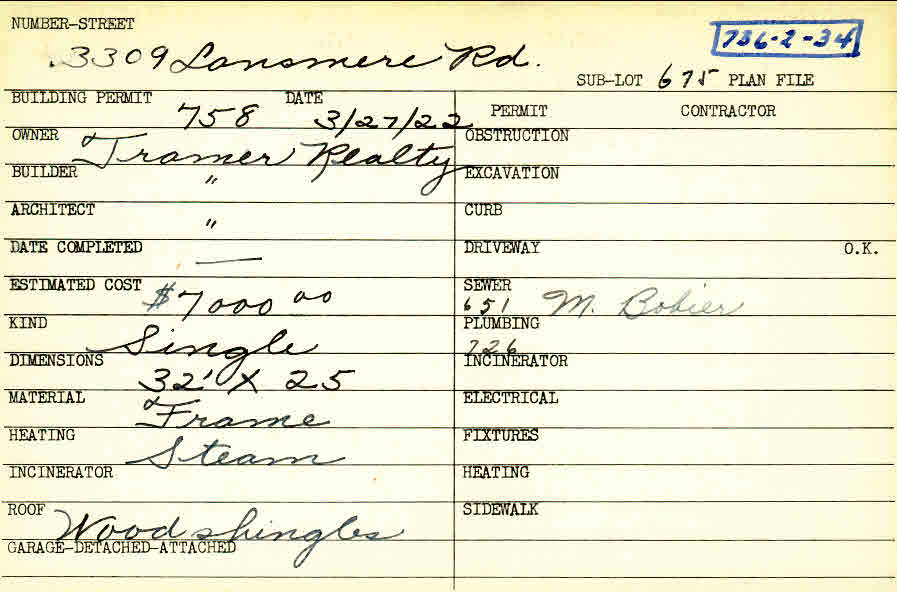 NUMBER-STREET
3309 Lansmere Rd.
736-2-34
SUB-LOT 675 PLAN FILE
BUILDING PERMIT 758 DATE 3/27/22
OWNER Tramer Realty
BUILDER "
ARCHITECT "
DATE COMPLETED —
ESTIMATED COST $7000 00
KIND Single
DIMENSIONS 32' X 25
MATERIAL Frame
HEATING Steam
INCINERATOR
ROOF Wood shingles
GARAGE-DETACHED-ATTACHED
PERMIT CONTRACTOR
OBSTRUCTION
EXCAVATION
CURB
DRIVEWAY O.K.
SEWER
651 M. Bobier
PLUMBING
726
INCINERATOR
ELECTRICAL
FIXTURES
HEATING
SIDEWALK